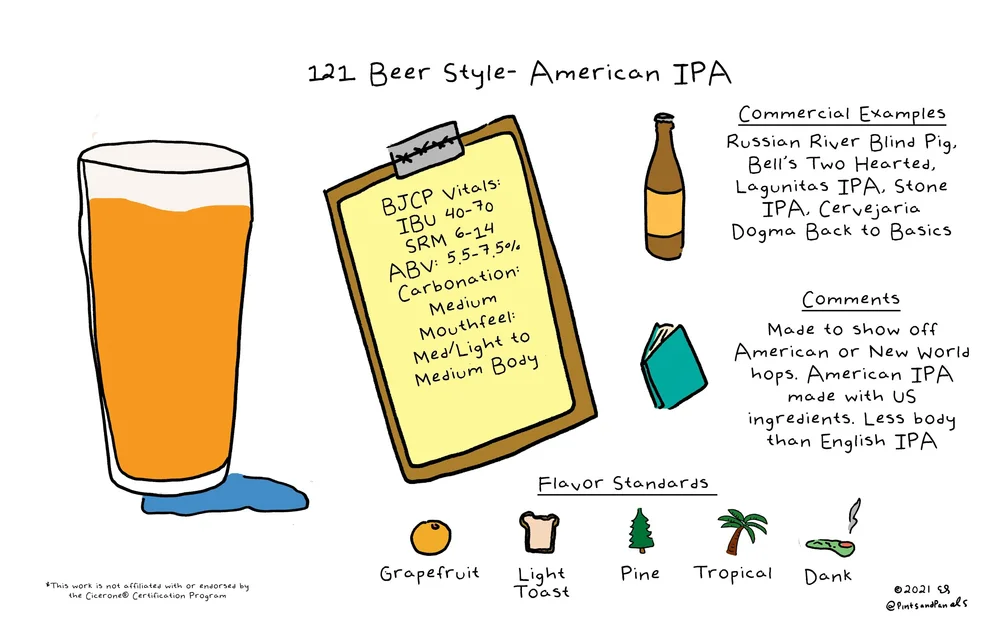 121 Beer Style- American IPA
BJCP Vitals:
IBU 40-70
SRM 6-14
ABV: 5.5-7.5%
Carbonation:
Medium
Mouthfeel:
Med/Light to
Medium Body
Commercial Examples
Russian River Blind Pig,
Bell's Two Hearted,
Lagunitas IPA, Stone
IPA, Cervejaria
Dogma Back to Basics
Comments
Made to show off
American or New World
hops. American IPA
made with US
ingredients. Less body
than English IPA
Flavor Standards
Grapefruit
Light
Toast
Pine
Tropical
Dank
*This work is not affiliated with or endorsed by
the Cicerone® Certification Program
©2021 ES
@PintsandPanels